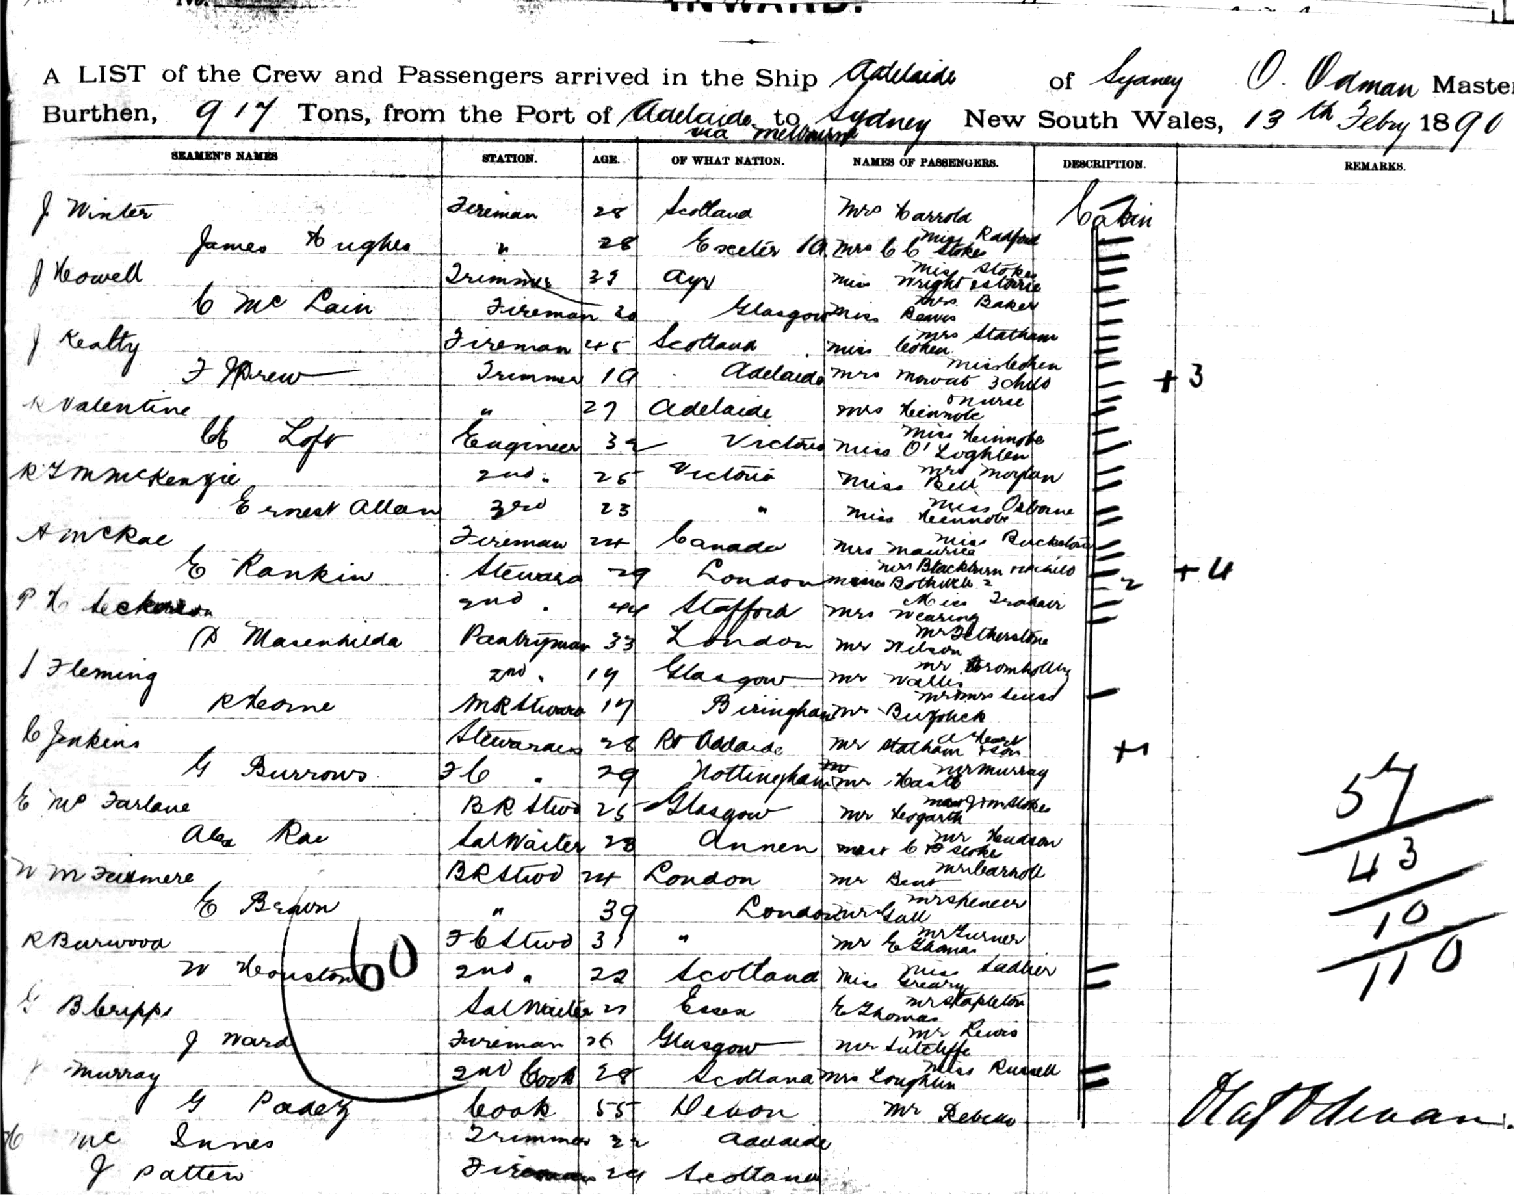 INWARD.
A LIST of the Crew and Passengers arrived in the Ship Adelaide of Sydney O. Odman Master
Burthen, 917 Tons, from the Port of Adelaide to Sydney New South Wales, 13th Febry 1890
via Melbourne
SEAMEN'S NAMES STATION. AGE. OF WHAT NATION. NAMES OF PASSENGERS. DESCRIPTION. REMARKS.
J Winter Fireman 28 Scotland Mrs Carrola Cabin
Miss Radford
James Hughes " 28 Exeter Mrs C C Stokes
Miss Stokes
J Howell Trimmer 39 Ayr Miss Wright
Mrs Baker
C Mc Lain Fireman 20 Glasgow Miss Beaver
Mrs Statham
J Kealty Fireman 45 Scotland Miss Cohen
Miss Cohen
F J Drew Trimmer 19 Adelaide Mrs Mowat 3 chils +3
& nurse
R Valentine " 27 Adelaide Mrs Heinnobe
Miss Heinnobe
Loft Engineer 32 Victoria Miss O'Loghlen
Mrs Morgan
McKenzie 2nd " 25 Victoria Miss Bell
Miss Osborne
Ernest Allan 3rd 23 " Miss Heinnobe
Miss
A McRae Fireman 24 Canada Mrs Maurice
Mrs Blackburn
E Rankin Steward 29 London Bothwick 2 +4
Miss Trahair
2nd " 44 Stafford Mrs Wearing
Mr Fetherstone
Masenhilda Pantryman 33 London Mr Wilson
Mr
J Fleming 2nd " 19 Glasgow Mr Wallis
Mr Mrs
R Hearne MR Steward 17 Biringham Mr
C Jenkins Stewardess 28 Pt Adelaide Mr Statham & son +1
Mr Murray
G Burrows FC " 29 Nottingham Mr
57
E Mc Farlane BR Stwd 25 Glasgow Mr Hogarth
Mr Hudson
Alex Rae Sal Waiter 23 Annen C B Stoke
43
Mr Carroll
W M BR Stwd 24 London Mr Bent
Mr Spencer
E Brown " 39 London Mr Gall
10
Mr Turner
R Burwood FC Stwd 31 " Mr E Thomas
110
Miss Sadlier
W Houston 60 2nd " 22 Scotland Miss Creary
Mr Stapleton
G B Cripps Sal Waiter 21 Essex E Thomas
Mr Lewis
J Ward Fireman 26 Glasgow Mr Sutcliffe
Miss Russell
Murray 2nd Cook 28 Scotland Mrs Loughlin
G Padey Cook 55 Devon Mr
Olaf Odman.
Mc Innes Trimmer 22 Adelaide
J Patten Fireman 24 Scotland